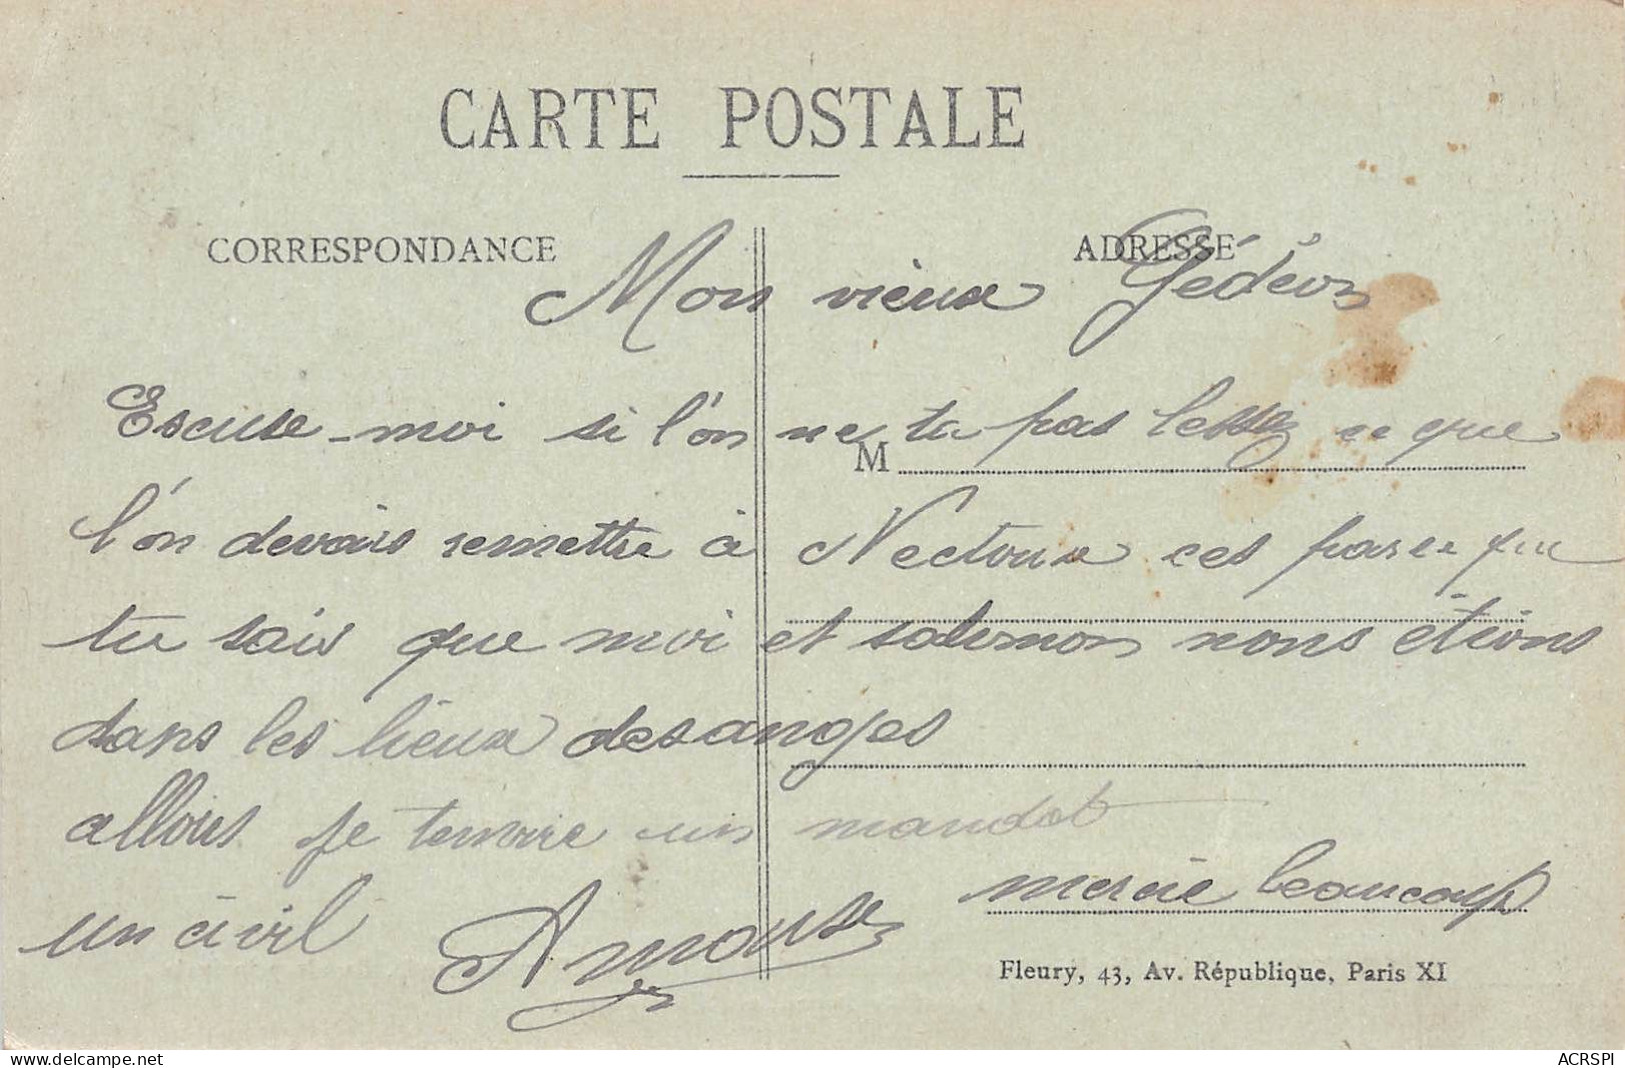 CARTE POSTALE
CORRESPONDANCE
ADRESSE
Mon vieux Gédéon
Escuse-moi si l'on ne ta pas ce que
M
l'on devais remettre à Nectoux ces parce que
tu sais que moi et salomon nous étions
dans les lieux des anges
allors je tenvoie un mandat
mercie beaucoup
un civil
Fleury, 43, Av. République, Paris XI
www.delcampe.net
ACRSPI